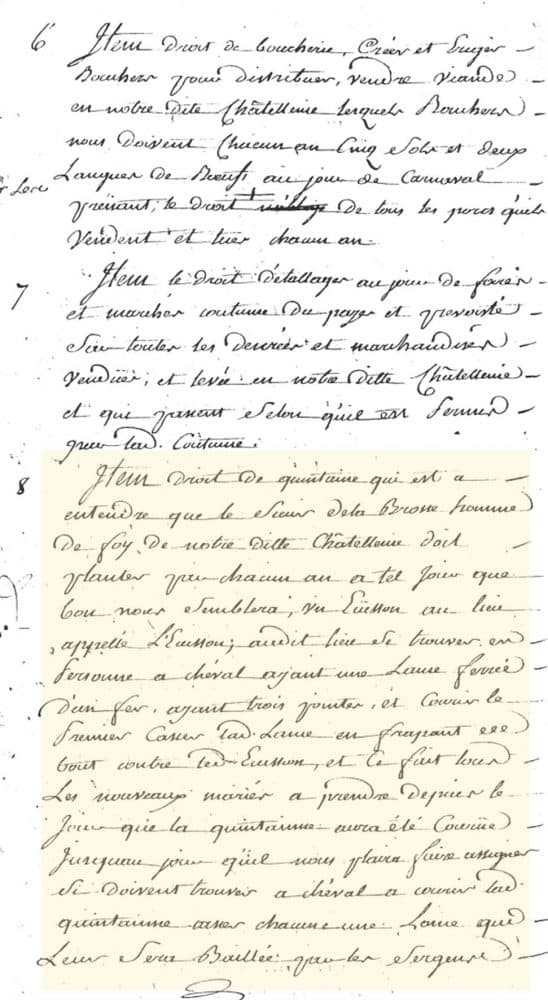 6 Item droit de boucherie, Créer et Eriger
Bouchers pour distribuer, vendre viande
en notre dite Châtellenie lesquels Bouchers
nous doivent chacun an Cinq Sols et deux
Langues de Bœufs au jour de Carnaval
prenant, le droit de tous les porcs qu'ils
Vendent et tuer chacun an.
7 Item le droit d'étallages au jour de foires
et marchés coutume du payes et prevosté
Sur toutes les denrées et marchandises
Vendües, et levée en notre ditte Châtellenie
et que passent Selon qu'il est permis
par lad. Coutume.
8 Item droit de quintaine qui est a
entendre que le Sieur dela Brosse homme
De foy De notre ditte Châtellenie doit
planter par chacun an a tel Jour que
bon nous Semblera, un Ecusson au lieu
appellé L'Ecusson; audit lieu Se trouver en
Personne a cheval ayant une Lame ferrée
D'un fer, ayant trois pointes, et Courir le
Premier Casser lad. Lame en frapant
bout contre led. Ecusson, et Ce fait tous
Les nouveaux mariés a prendre depuis le
Jour que la quintainne aura été Courrüe
Jusquau jour qu'il nous plaira faire assigner
Se doivent trouver a cheval a courir lad.
quintainne avec chacune une Lame qui
Leur Sera Baillée par les Sergens